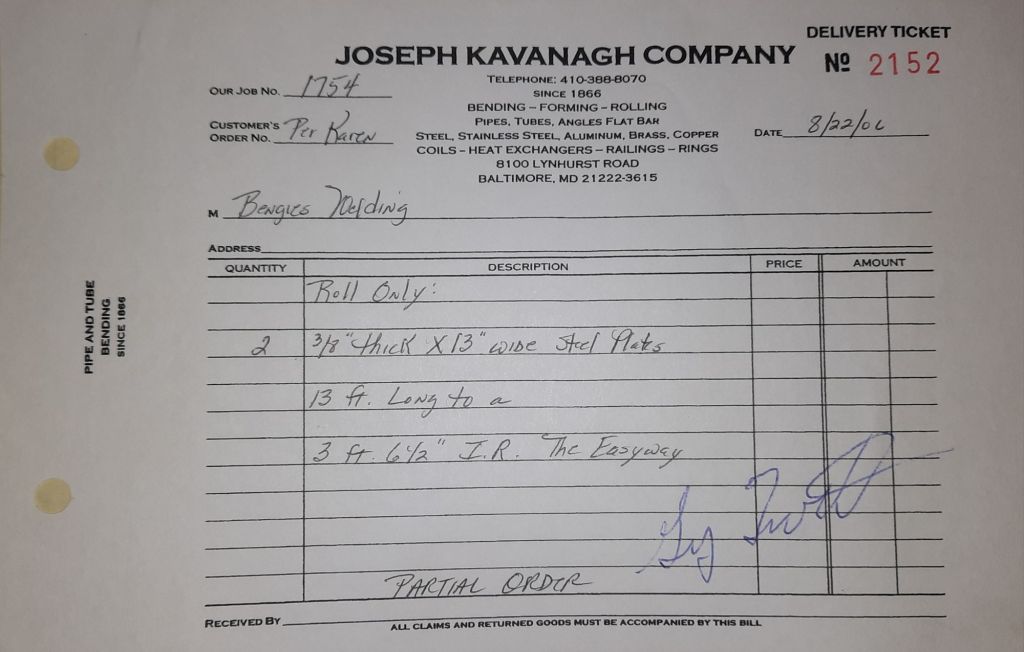 DELIVERY TICKET
JOSEPH KAVANAGH COMPANY
Nº 2152
TELEPHONE: 410-388-8070
SINCE 1866
OUR JOB NO. 1754
BENDING – FORMING – ROLLING
PIPES, TUBES, ANGLES FLAT BAR
CUSTOMER'S
ORDER NO. Per Karen
STEEL, STAINLESS STEEL, ALUMINUM, BRASS, COPPER
DATE 8/22/06
COILS – HEAT EXCHANGERS – RAILINGS – RINGS
8100 LYNHURST ROAD
BALTIMORE, MD 21222-3615
M Bengies Welding
ADDRESS
QUANTITY DESCRIPTION PRICE AMOUNT
Roll Only:
2 3/8" thick X 13" wide Steel Plates
13 ft. Long to a
3 ft. 6 1/2" I.R. The Easyway
PARTIAL ORDER
RECEIVED BY
ALL CLAIMS AND RETURNED GOODS MUST BE ACCOMPANIED BY THIS BILL
PIPE AND TUBE
BENDING
SINCE 1866